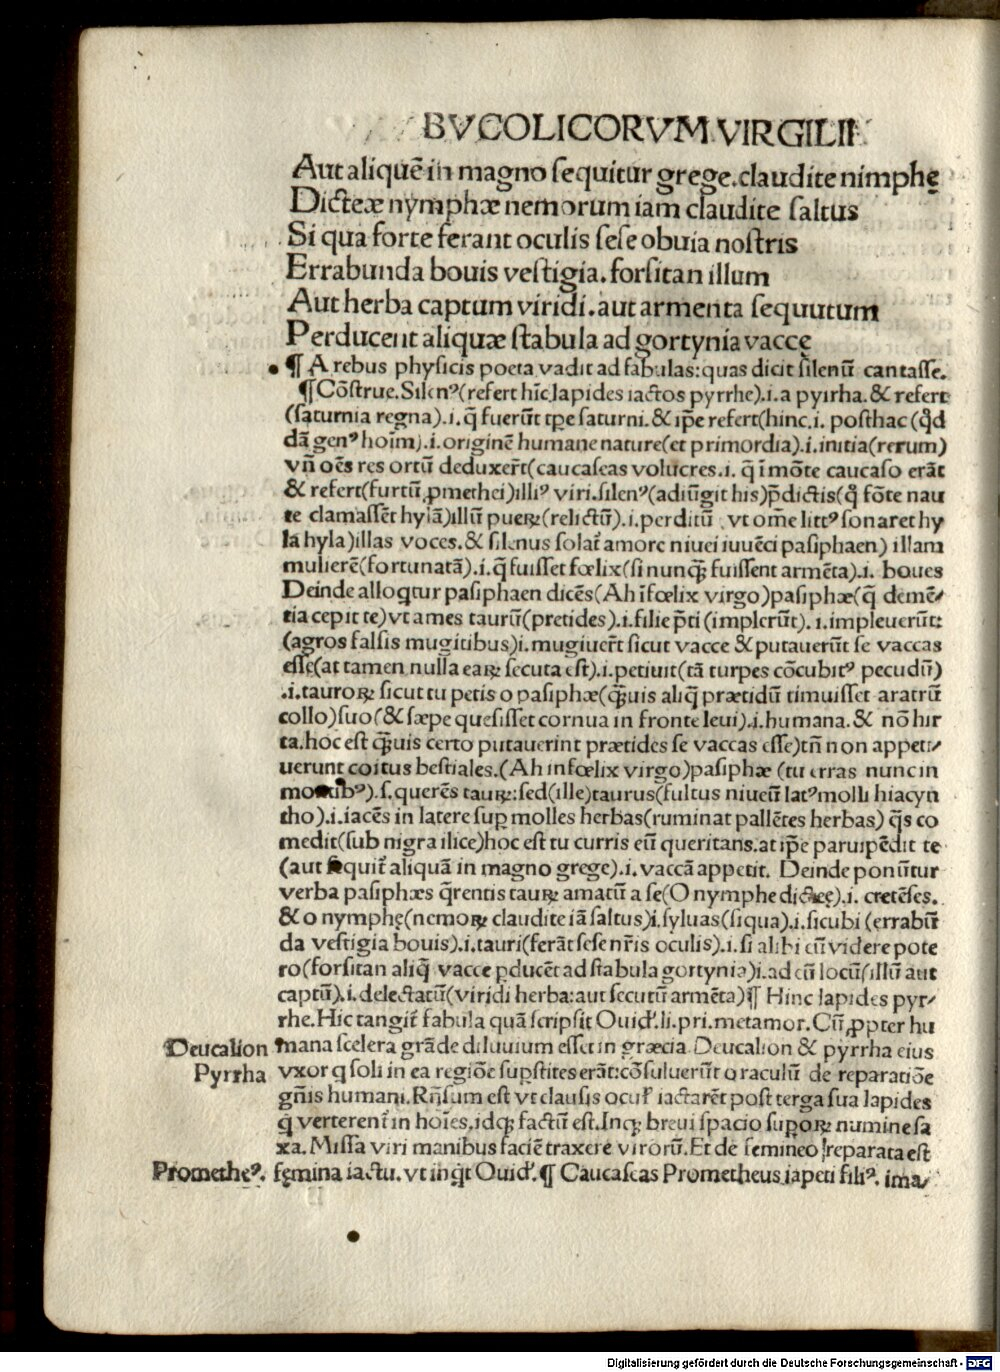 BVCOLICORVM VIRGILII
Aut aliquē in magno ſequitur grege.claudite nimphę
Dicteæ nymphæ nemorum iam claudite ſaltus
Si qua forte ferant oculis ſeſe obuia noſtris
Errabunda bouis veſtigia.forſitan illum
Aut herba captum viridi.aut armenta ſequutum
Perducent aliquæ ſtabula ad gortynia vaccę
¶ A rebus phyſicis poeta vadit ad fabulas:quas dicit ſilenū cantaſſe.
¶ Cōſtrue.Silenꝰ(refert hīc lapides iactos pyrrhe).i.a pyrrha.& refert
(ſaturnia regna).i.q̄ fuerūt tꝑe ſaturni.& iꝑe refert(hinc.i. poſthac (qd̄
dā genꝰ hoīm).i.originē humane nature(et primordia).i.initia(rerum)
vn̄ oēs res ortū deduxer̄t(caucaſeas volucres.i. q̄ ī mōte caucaſo erāt
& refert(furtū ꝓmethei)illiꝰ viri.ſilenꝰ(adiūgit his)p̄dictis(q̄ fōte nau
te clamaſſēt hylā)illū pueꝝ(relictū).i.perditū vt om̄e littꝰ ſonaret hy
la hyla)illas voces.& ſilenus ſolat̄ amore niuei iuuēci paſiphaen) illam
mulierē(fortunatā).i.q̄ fuiſſet fœlix(ſi nunqꝫ fuiſſent armēta).i. boues
Deinde alloqtur paſiphaen dicēs(Ah īfœlix virgo)paſiphæ(q̄ demē⸗
tia cepit te)vt ames taurū(pretides).i.filie p̄ti (implerūt). i.impleuerūt:
(agros falſis mugitibus)i.mugiuer̄t ſicut vacce & putauerūt ſe vaccas
eſſe(at tamen nulla eaꝝ ſecuta eſt).i.petiuit(tā turpes cōcubitꝰ pecudū)
.i.tauroꝝ ſicut tu petis o paſiphæ(qꝫuis aliq̄ prætidū timuiſſet aratrū
collo)ſuo(& ſæpe queſiſſet cornua in fronte leui).i.humana.& nō hir
ta.hoc eſt qꝫuis certo putauerint prætides ſe vaccas eſſe)tn̄ non appeti⸗
uerunt coitus beſtiales.(Ah infœlix virgo)paſiphæ (tu erras nunc in
motibꝰ).ſ.querēs tauꝝ:ſed(ille)taurus(fultus niueū latꝰ molli hiacyn
tho).i.iacēs in latere ſuꝑ molles herbas(ruminat pallētes herbas) q̄s co
medit(ſub nigra ilice)hoc eſt tu curris eū queritans.at iꝑe paruipēdit te
(aut ſequit̄ aliquā in magno grege).i.vaccā appetit. Deinde ponūtur
verba paſiphæs q̄rentis tauꝝ amatū a ſe(O nymphe dicteę).i. cretēſes.
& o nymphę(nemoꝝ claudite iā ſaltus)i.ſyluas(ſiqua).i.ſicubi (errabū
da veſtigia bouis).i.tauri(ferāt ſeſe nr̄is oculis).i.ſi alibi eū videre pote
ro(forſitan aliq̄ vacce ꝑducēt ad ſtabula gortynia)i.ad eū locū(illū aut
captū).i.delectatū(viridi herba:aut ſecutū armēta)¶ Hinc lapides pyr⸗
rhe.Hic tangit̄ fabula quā ſcripſit Ouid̛.li.pri.metamor.Cū ꝓpter hu
Deucalion mana ſcelera grāde diluuium eſſet in græcia Deucalion & pyrrha eius
Pyrrha vxor q ſoli in ea regiōe ſuꝑſtites erāt:cōſuluerūt oraculū de reparatiōe
gn̄is humani.Rn̄ſum eſt vt clauſis ocul̛ iactarēt poſt terga ſua lapides
q̄ verterent̄ in hoīes.idqꝫ factū eſt.Inqꝫ breui ſpacio ſuꝑoꝝ numine ſa
xa. Miſſa viri manibus faciē traxere viroꝝ.Et de femineo reparata eſt
Prometheꝰ. fęmina iactu. vt inqt Ouid̛.¶ Caucaſeas Prometheus iapeti filiꝰ. ima⸗
Digitalisierung gefördert durch die Deutsche Forschungsgemeinschaft - DFG